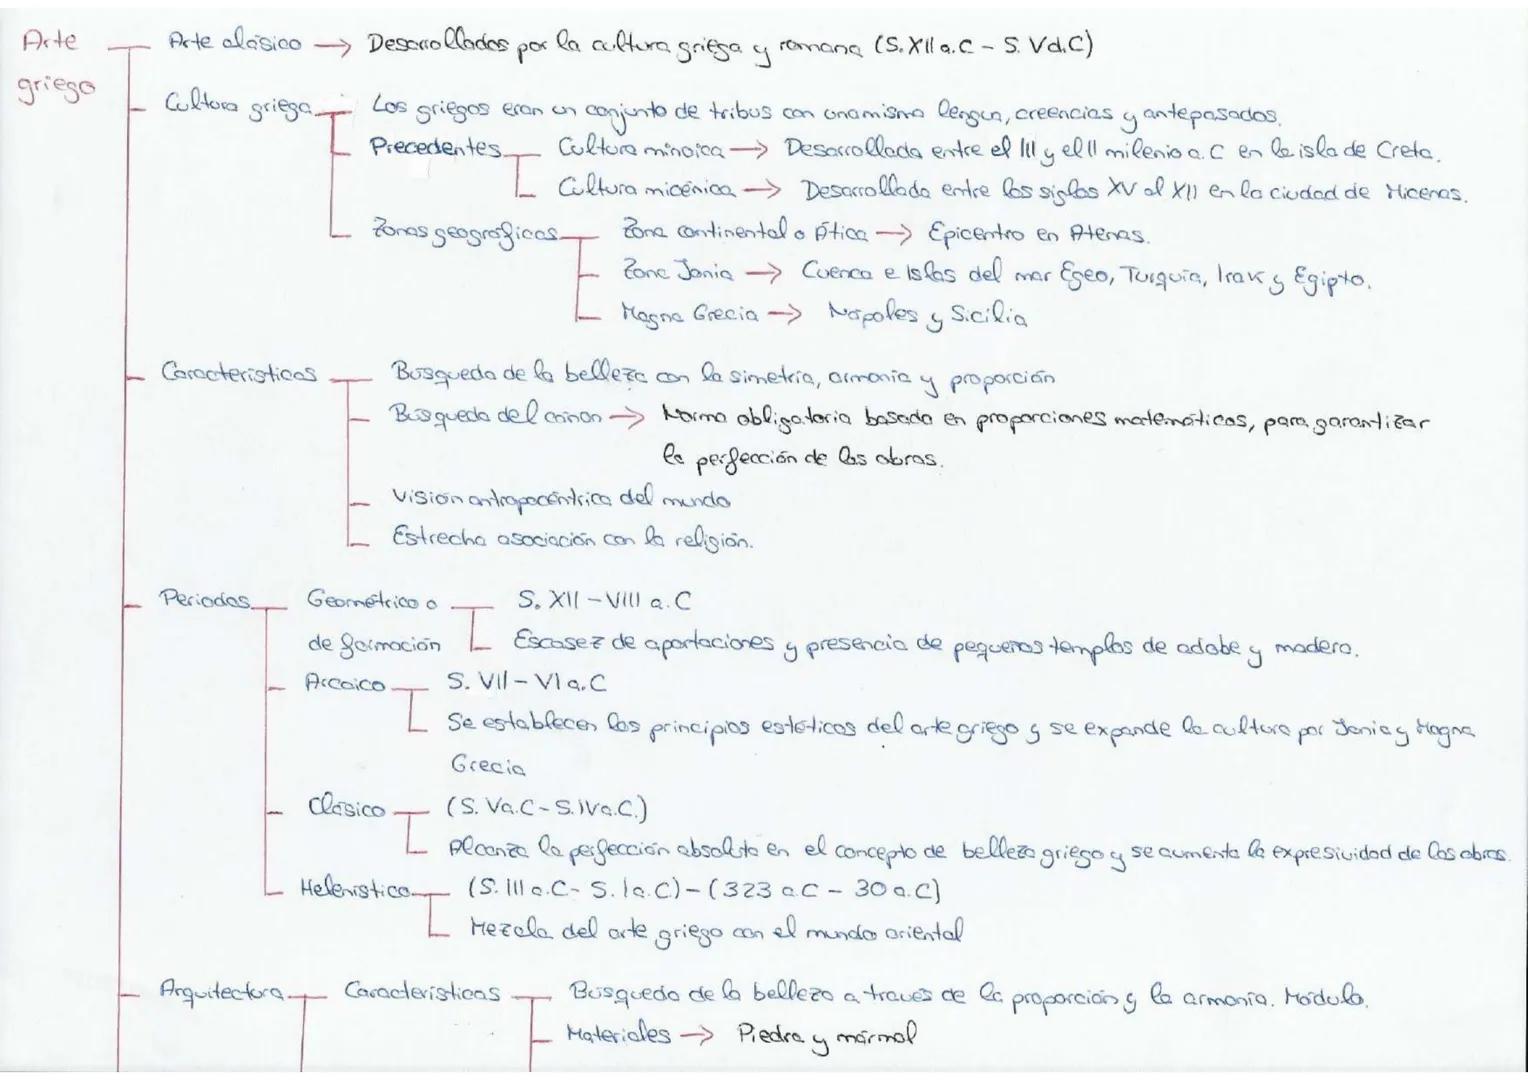 Arte griego
Arte clásico → Desarrollados por la cultura griega y romana (S. XII a.C - S. V d.C)
Cultura griega
Los griegos eran un conjunto de tribus con una misma lengua, creencias y antepasados.
Precedentes
Cultura minoica → Desarrollada entre el III y el II milenio a.C en la isla de Creta.
Cultura micénica → Desarrollada entre los siglos XV al XII en la ciudad de Micenas.
Zonas geográficas
Zona continental o Ática → Epicentro en Atenas.
Zona Jonia → Cuenca e Islas del mar Egeo, Turquía, Irak y Egipto.
Magna Grecia → Nápoles y Sicilia
Características
Búsqueda de la belleza con la simetría, armonía y proporción
Búsqueda del canon → Norma obligatoria basada en proporciones matemáticas, para garantizar
la perfección de las obras.
Visión antropocéntrica del mundo
Estrecha asociación con la religión.
Periodos
Geométrico o
S. XII - VIII a.C
de formación
Escasez de aportaciones y presencia de pequeños templos de adobe y madera.
Arcaico
S. VII - VI a.C
Se establecen los principios estéticos del arte griego y se expande la cultura por Jonia y Magna
Grecia
Clásico
(S. V a.C - S. IV a.C.)
Alcanza la perfección absoluta en el concepto de belleza griego y se aumenta la expresividad de las obras.
Helenístico
(S. III a.C - S. I a.C) - (323 a.C - 30 a.C)
Mezcla del arte griego con el mundo oriental
Arquitectura
Características
Búsqueda de la belleza a través de la proporción y la armonía. Módulo.
Materiales → Piedra y mármol